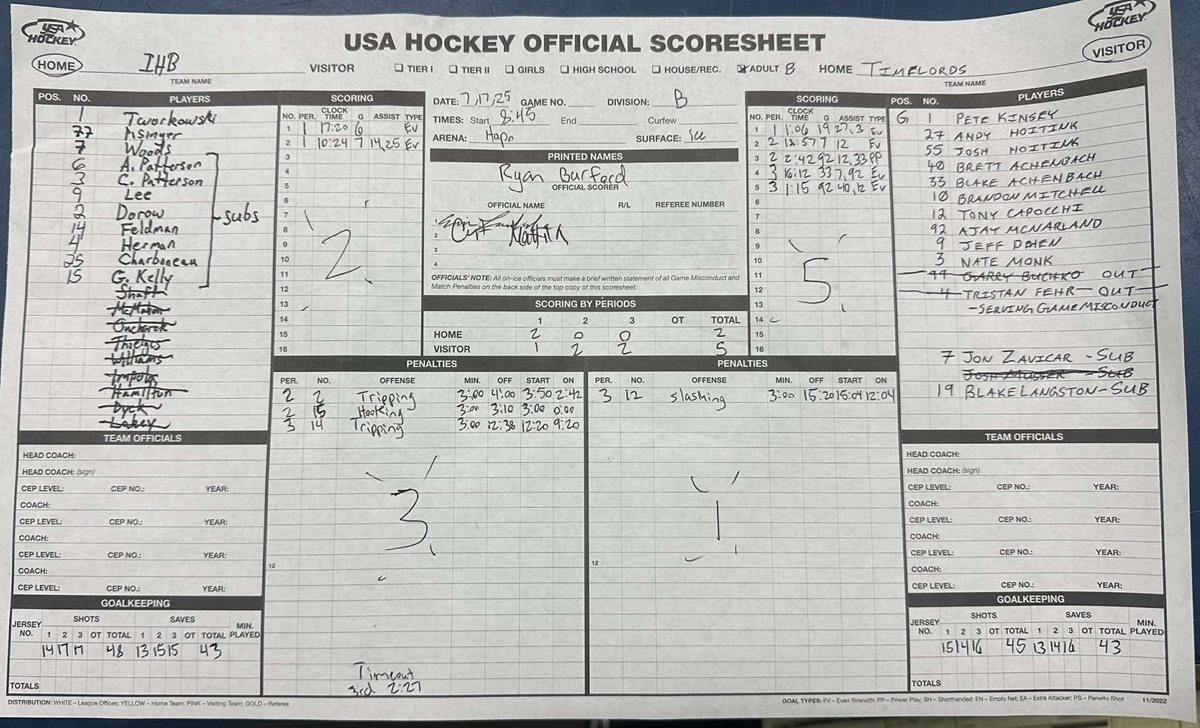 USA HOCKEY
USA HOCKEY
USA HOCKEY OFFICIAL SCORESHEET
HOME IHB VISITOR ☐ TIER I ☐ TIER II ☐ GIRLS ☐ HIGH SCHOOL ☐ HOUSE/REC. ☒ ADULT B HOME TIMELORDS VISITOR
TEAM NAME
TEAM NAME
POS. NO. PLAYERS
1 Tworkowski
77 Pisinger
7 Woods
6 A. Patterson
3 C. Patterson
9 Lee
2 Dorow
14 Feldman
4 Herman
25 Charboneau
15 G. Kelly
subs
Shaft
McMahon
Thielges
Williams
Hamilton
Dyck
SCORING
NO. PER. CLOCK TIME G ASSIST TYPE
1 1 17:20 6 Ev
2 1 10:24 7 14,25 Ev
3
4
5
6
7
8
9
10
11
12
13
14
15
16
2
DATE: 7,17,25 GAME NO. DIVISION: B
TIMES: Start 8:45 End Curfew
ARENA: Hapo SURFACE: Ice
PRINTED NAMES
Ryan Burford
OFFICIAL SCORER
OFFICIAL NAME R/L REFEREE NUMBER
1
2
3
4
OFFICIALS' NOTE: All on-ice officials must make a brief written statement of all Game Misconduct and
Match Penalties on the back side of the top copy of this scoresheet.
SCORING BY PERIODS
1 2 3 OT TOTAL
HOME 2 0 0 2
VISITOR 1 2 2 5
SCORING
NO. PER. CLOCK TIME G ASSIST TYPE
1 1 1:06 19 27,3 Ev
2 2 12:57 7 12 Ev
3 2 2:42 92 12,33 PP
4 3 16:12 33 7,92 Ev
5 3 1:15 92 40,12 Ev
6
7
8
9
10
11
12
13
14
15
16
5
POS. NO. PLAYERS
G 1 PETE KINSEY
27 ANDY HOITINK
55 JOSH HOITINK
40 BRETT ACHENBACH
33 BLAKE ACHENBACH
10 BRANDON MITCHELL
12 TONY CAPOCCHI
92 AJAY MCNARLAND
9 JEFF DAHEN
3 NATE MONK
99 GARRY BUCHKO OUT
4 TRISTAN FEHR OUT
-SERVING GAME MISCONDUCT
7 JON ZAVICAR - SUB
JOSH MUSSER - SUB
19 BLAKE LANGSTON - SUB
PENALTIES
PER. NO. OFFENSE MIN. OFF START ON
2 2 Tripping 3:00 4:00 3:50 2:42
2 15 Hooking 3:00 3:10 3:00 0:00
3 14 Tripping 3:00 12:38 12:20 9:20
3
12
Timeout
3rd 2:27
PENALTIES
PER. NO. OFFENSE MIN. OFF START ON
3 12 slashing 3:00 15:20 15:04 12:04
1
12
TEAM OFFICIALS
HEAD COACH:
HEAD COACH: (sign)
CEP LEVEL: CEP NO.: YEAR:
COACH:
CEP LEVEL: CEP NO.: YEAR:
COACH:
CEP LEVEL: CEP NO.: YEAR:
COACH:
CEP LEVEL: CEP NO.: YEAR:
GOALKEEPING
JERSEY NO. SHOTS SAVES MIN. PLAYED
1 2 3 OT TOTAL 1 2 3 OT TOTAL
14 17 17 48 13 15 15 43
TOTALS
TEAM OFFICIALS
HEAD COACH:
HEAD COACH: (sign)
CEP LEVEL: CEP NO.: YEAR:
COACH:
CEP LEVEL: CEP NO.: YEAR:
COACH:
CEP LEVEL: CEP NO.: YEAR:
COACH:
CEP LEVEL: CEP NO.: YEAR:
GOALKEEPING
JERSEY NO. SHOTS SAVES MIN. PLAYED
1 2 3 OT TOTAL 1 2 3 OT TOTAL
15 14 16 45 13 14 16 43
TOTALS
DISTRIBUTION: WHITE – League Offices; YELLOW – Home Team; PINK – Visiting Team; GOLD – Referee
GOAL TYPES: EV – Even Strength; PP – Power Play; SH – Shorthanded; EN – Empty Net; EA – Extra Attacker; PS – Penalty Shot
11/2022